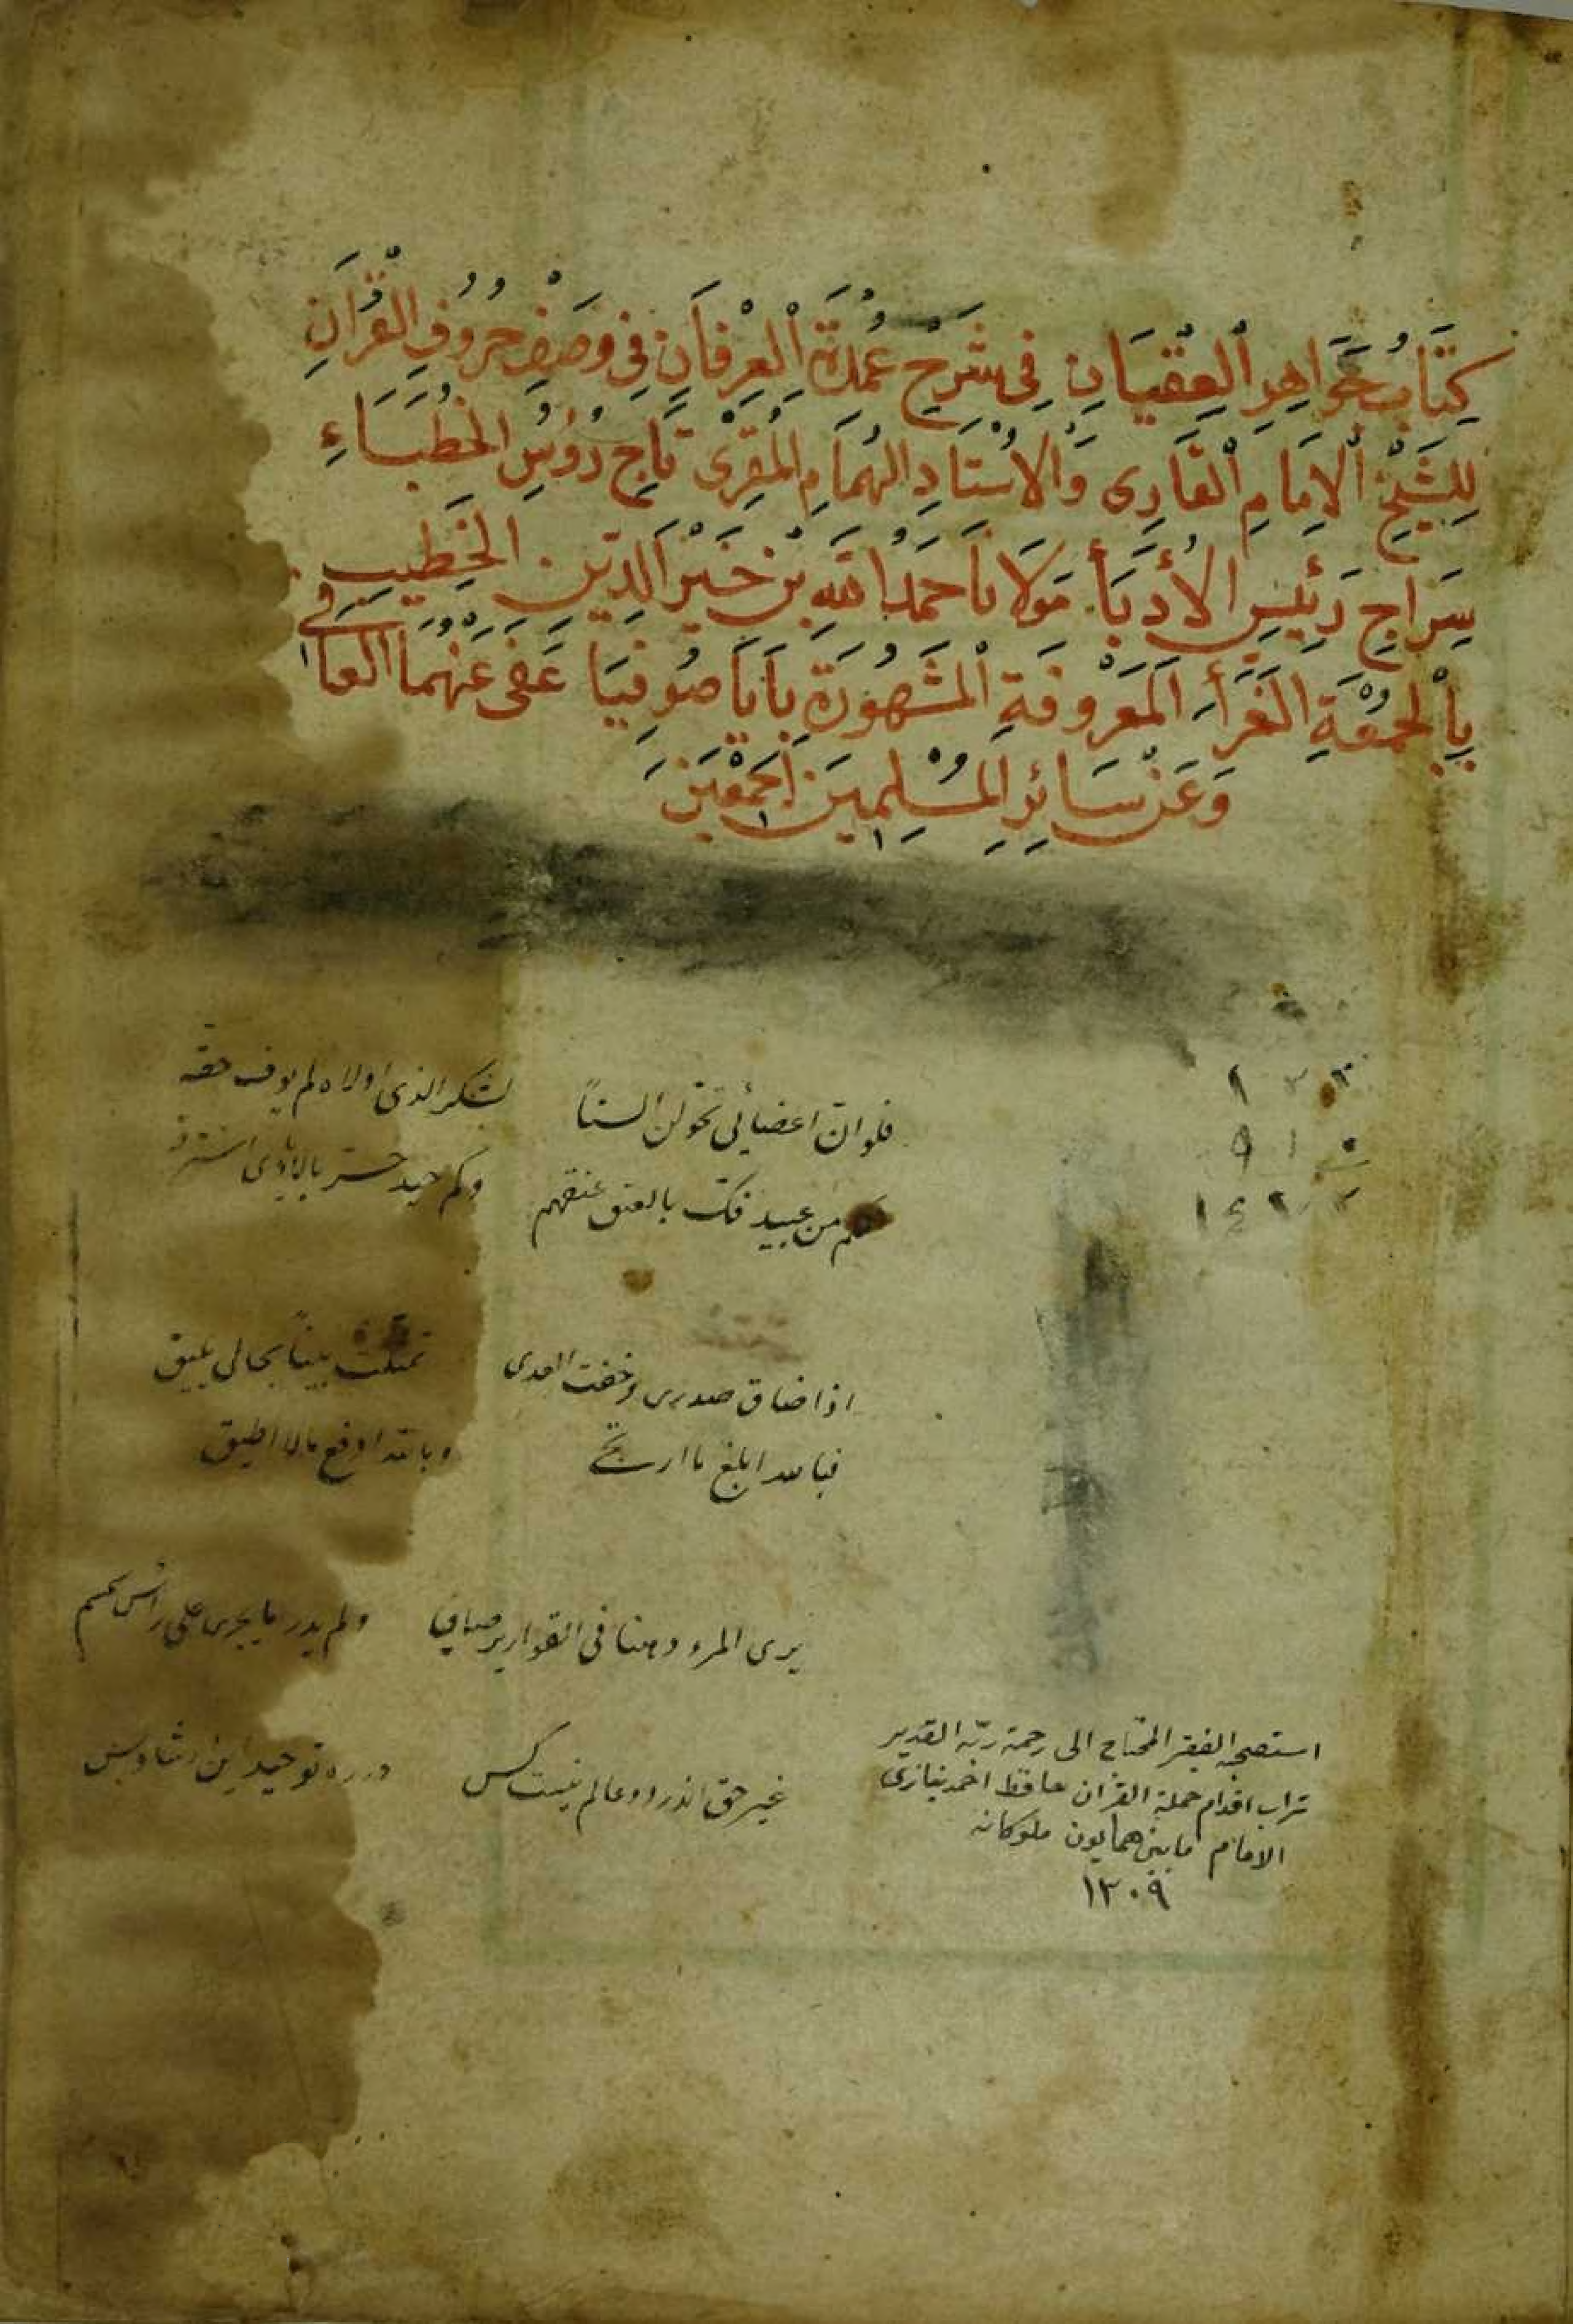 كِتَابُ جَوَاهِرِ الْعِقْيَانِ فِي شَرْحِ عُمْدَةِ الْعِرْفَانِ فِي وَصْفِ حُرُوفِ الْقُرْآنِ
لِلشَّيْخِ الْاِمَامِ الْقَارِى وَالْاُسْتَادِ الْهُمَامِ الْمُقْرِى تَاجِ رُؤُسِ الْخُطَبَاءِ
سِرَاجِ رَئِيسِ الْأُدَبَاءِ مَوْلَانَا حَمْدُ اللهِ بْنِ خَيْرِ الدِّينِ الْخَطِيبِ
بِالْجُمْعَةِ الْغَرَّاءِ الْمَعْرُوفَةِ الْمَشْهُورَةِ بِآيَا صُوفِيَا عَفَى عَنْهُمَا الْعَافِي
وَعَنْ سَائِرِ الْمُسْلِمِينَ اَجْمَعِينَ
فلو ان اعضائي تحولن السناً لشكر الذى اولاه لم يوف حقه
كم من عبيد فك بالعتق عنقهم وكم حر بالايادى استرقه
اذا ضاق صدرى وخفت العدى تمثلت بيتاً بحالى يليق
فبالله ابلغ ما ارتجى وبالله ادفع ما لا اطيق
يرى المرء دهنا فى القوارير صافيا ولم يدر ما يجرى على رأس سمسم
غير حق اندر دو عالم نيست كس در ره توحيد اين
استصحبه الفقير المحتاج الى رحمة ربّه القدير
تراب اقدام حملة القران حافظ احمد نيازى
الامام مابين همايون ملوكانه
١٣٠٩